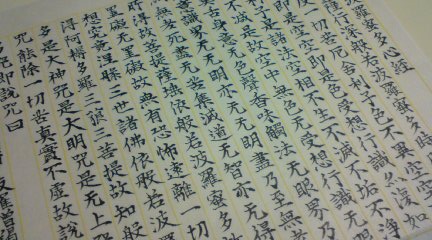 波羅蜜多心経
行深般若波羅蜜多時
一切苦厄舍利子色不異空
是空空即是色受想行識亦復如
子是諸法空相不生不滅不垢不淨
是故空中无色无受想行識无
舌身意无色聲香味觸法无眼界乃
意識界无无明亦无无明盡乃至无老
无老死盡无苦集滅道无智亦无得
所得故菩提薩埵依般若波羅蜜多
罣礙无罣礙故无有恐怖遠離一切
想究竟涅槃三世諸佛依般若波
得阿耨多羅三藐三菩提故知般
多是大神咒是大明咒是无上
咒能除一切苦真實不虛故說
多咒即說咒曰